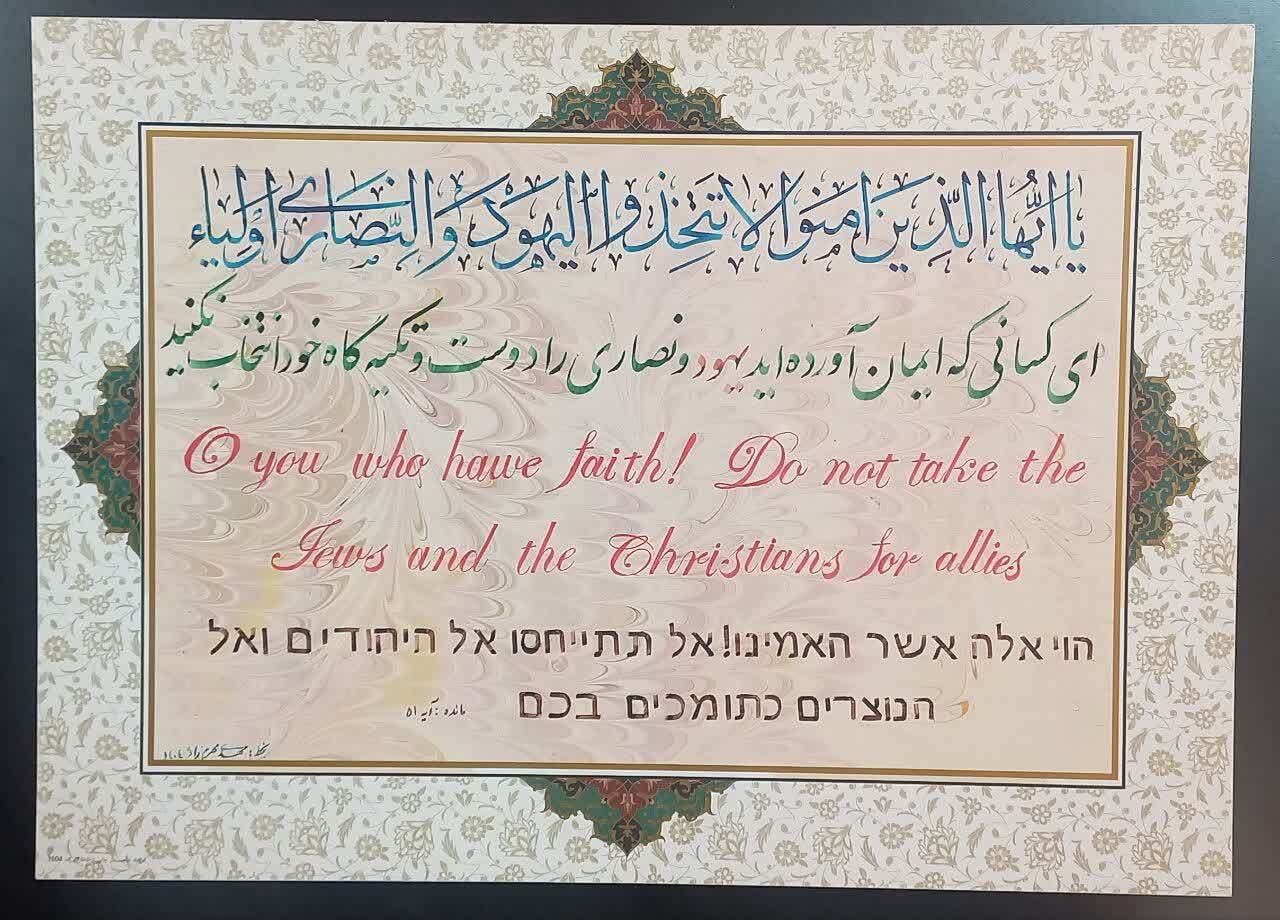 يا أَيُّهَا الَّذِينَ امَنوا لا تَتَّخِذوا اليَهوَدَ وَالنَّصَارَىٰ أَوْلياء
ای کسانی که ایمان آورده اید یهود و نصاری را دوست و تکیه گاه خود انتخاب نکنید
O you who hawe faith! Do not take the
Jews and the Christians for allies
הוי אלה אשר האמינו! אל תתייחסו אל היהודים ואל
הנוצרים כתומכים בכם
مائده : آیه ۵۱
بخط : محمد بهرم راد ۱۴۰۴